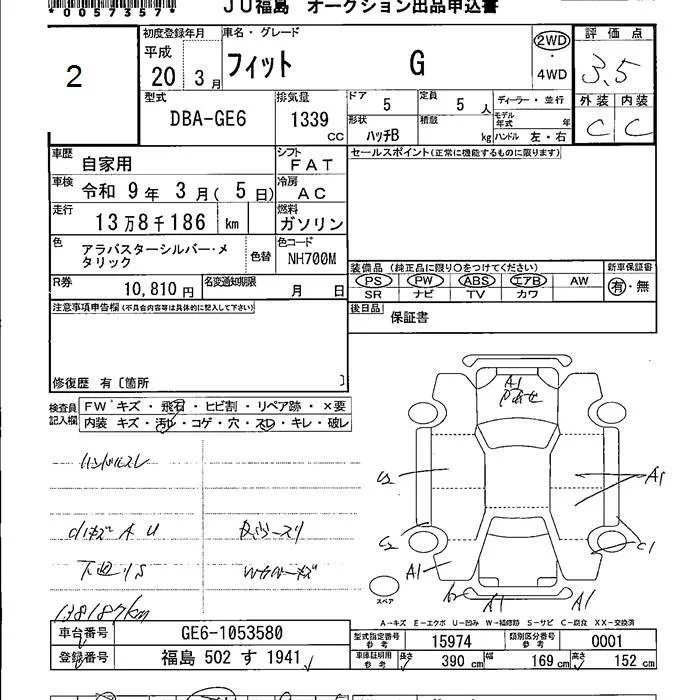 *0057357*
JU福島 オークション出品申込書
2
初度登録年月
平成
20 3月
車名・グレード
フィット G
2WD
・
4WD
評価点
3.5
外装 内装
C C
型式
DBA-GE6
排気量
1339
CC
ドア 5
定員 5 人
形状 ハッチB
積載 kg
ディーラー・並行
モデル年式 年
ハンドル 左・右
車歴 自家用
シフト FAT
車検 令和 9年 3月( 5日)
冷房 AC
走行 13万8千186 km
燃料 ガソリン
色 アラバスターシルバー・メタリック
色替
色コード NH700M
R券 10,810円
名変通知期限 月 日
セールスポイント(正常に機能するものに限ります)
装備品 (純正品に限り○をつけてください)
新車保証書
PS PW ABS エアB AW
有・無
SR ナビ TV カワ
後日品 保証書
注意事項申告欄(不具合内容等は具体的に記入して下さい)
修復歴 有〔箇所 〕
検査員記入欄
FW キズ・飛石・ヒビ割・リペア跡・×要
内装 キズ・汚レ・コゲ・穴・スレ・キレ・破レ
ハンドルスレ
下廻りS
138187km
A1
A1
A1
A1
A1
C1
スペア
A-キズ E-エクボ U-凹み W-補修跡 S-サビ C-腐食 XX-交換済
車台番号 GE6-1053580
登録番号 福島 502 す 1941
型式指定番号 参考 15974
類別区分番号 参考 0001
車庫証明用 参考 長さ 390 cm 幅 169 cm 高さ 152 cm